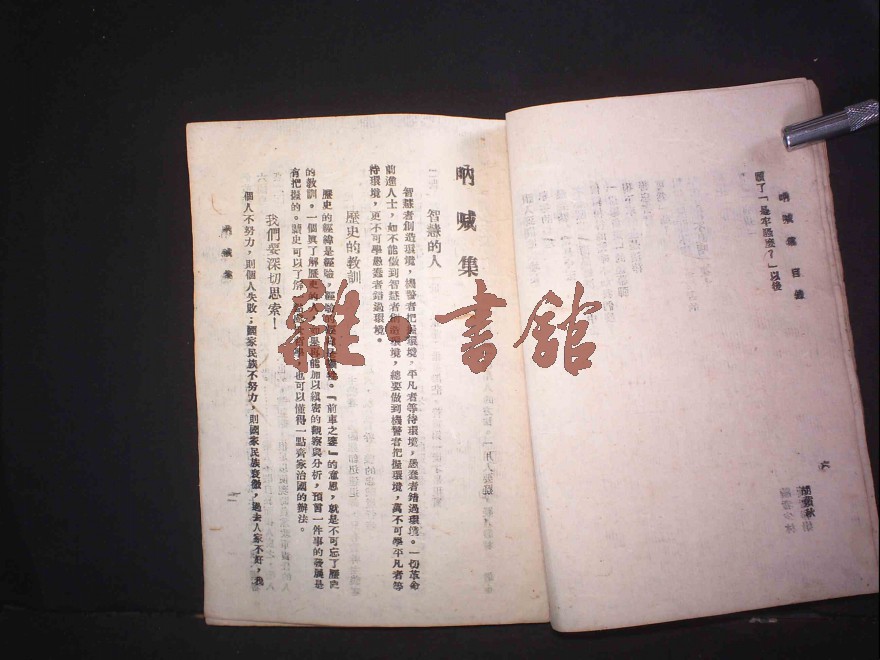 吶喊集目錄
讀了「是牢騷麼？」以後
六
胡蘊秋
吶喊集
智慧的人
智慧者創造環境，機警者把握環境，平凡者等待環境，愚蠢者錯過環境。一切革命
前進人士，如不能做到智慧者創造環境，總要做到機警者把握環境，萬不可學平凡者等
待環境，更不可學愚蠢者錯過環境。
歷史的教訓
歷史的經緯是經驗，經驗
『前車之鑒』的意思，就是不可忘了歷史
的教訓。一個真了解歷史的人，如果再能加以縝密的觀察與分析，預言一件事的發展是
有把握的。歷史可以了解
也可以懂得一點齊家治國的辦法。
我們要深切思索！
個人不努力，則個人失敗；國家民族不努力，則國家民族衰微，過去人家不好，我
吶喊集
一
雜書館